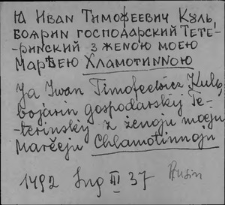 Ꙗ Иван Тимоѳеевич Куль,
боярин господарский Тете-
ринский з женою моею
Марѳею Хламотинною
Ja Iwan Timofeewicz Kul,
bojarin gospodarskiy Te-
terinskiy z żenoju mojeju
Marfeju Chlamotinnoju
1492 Lng III 37 Rusin